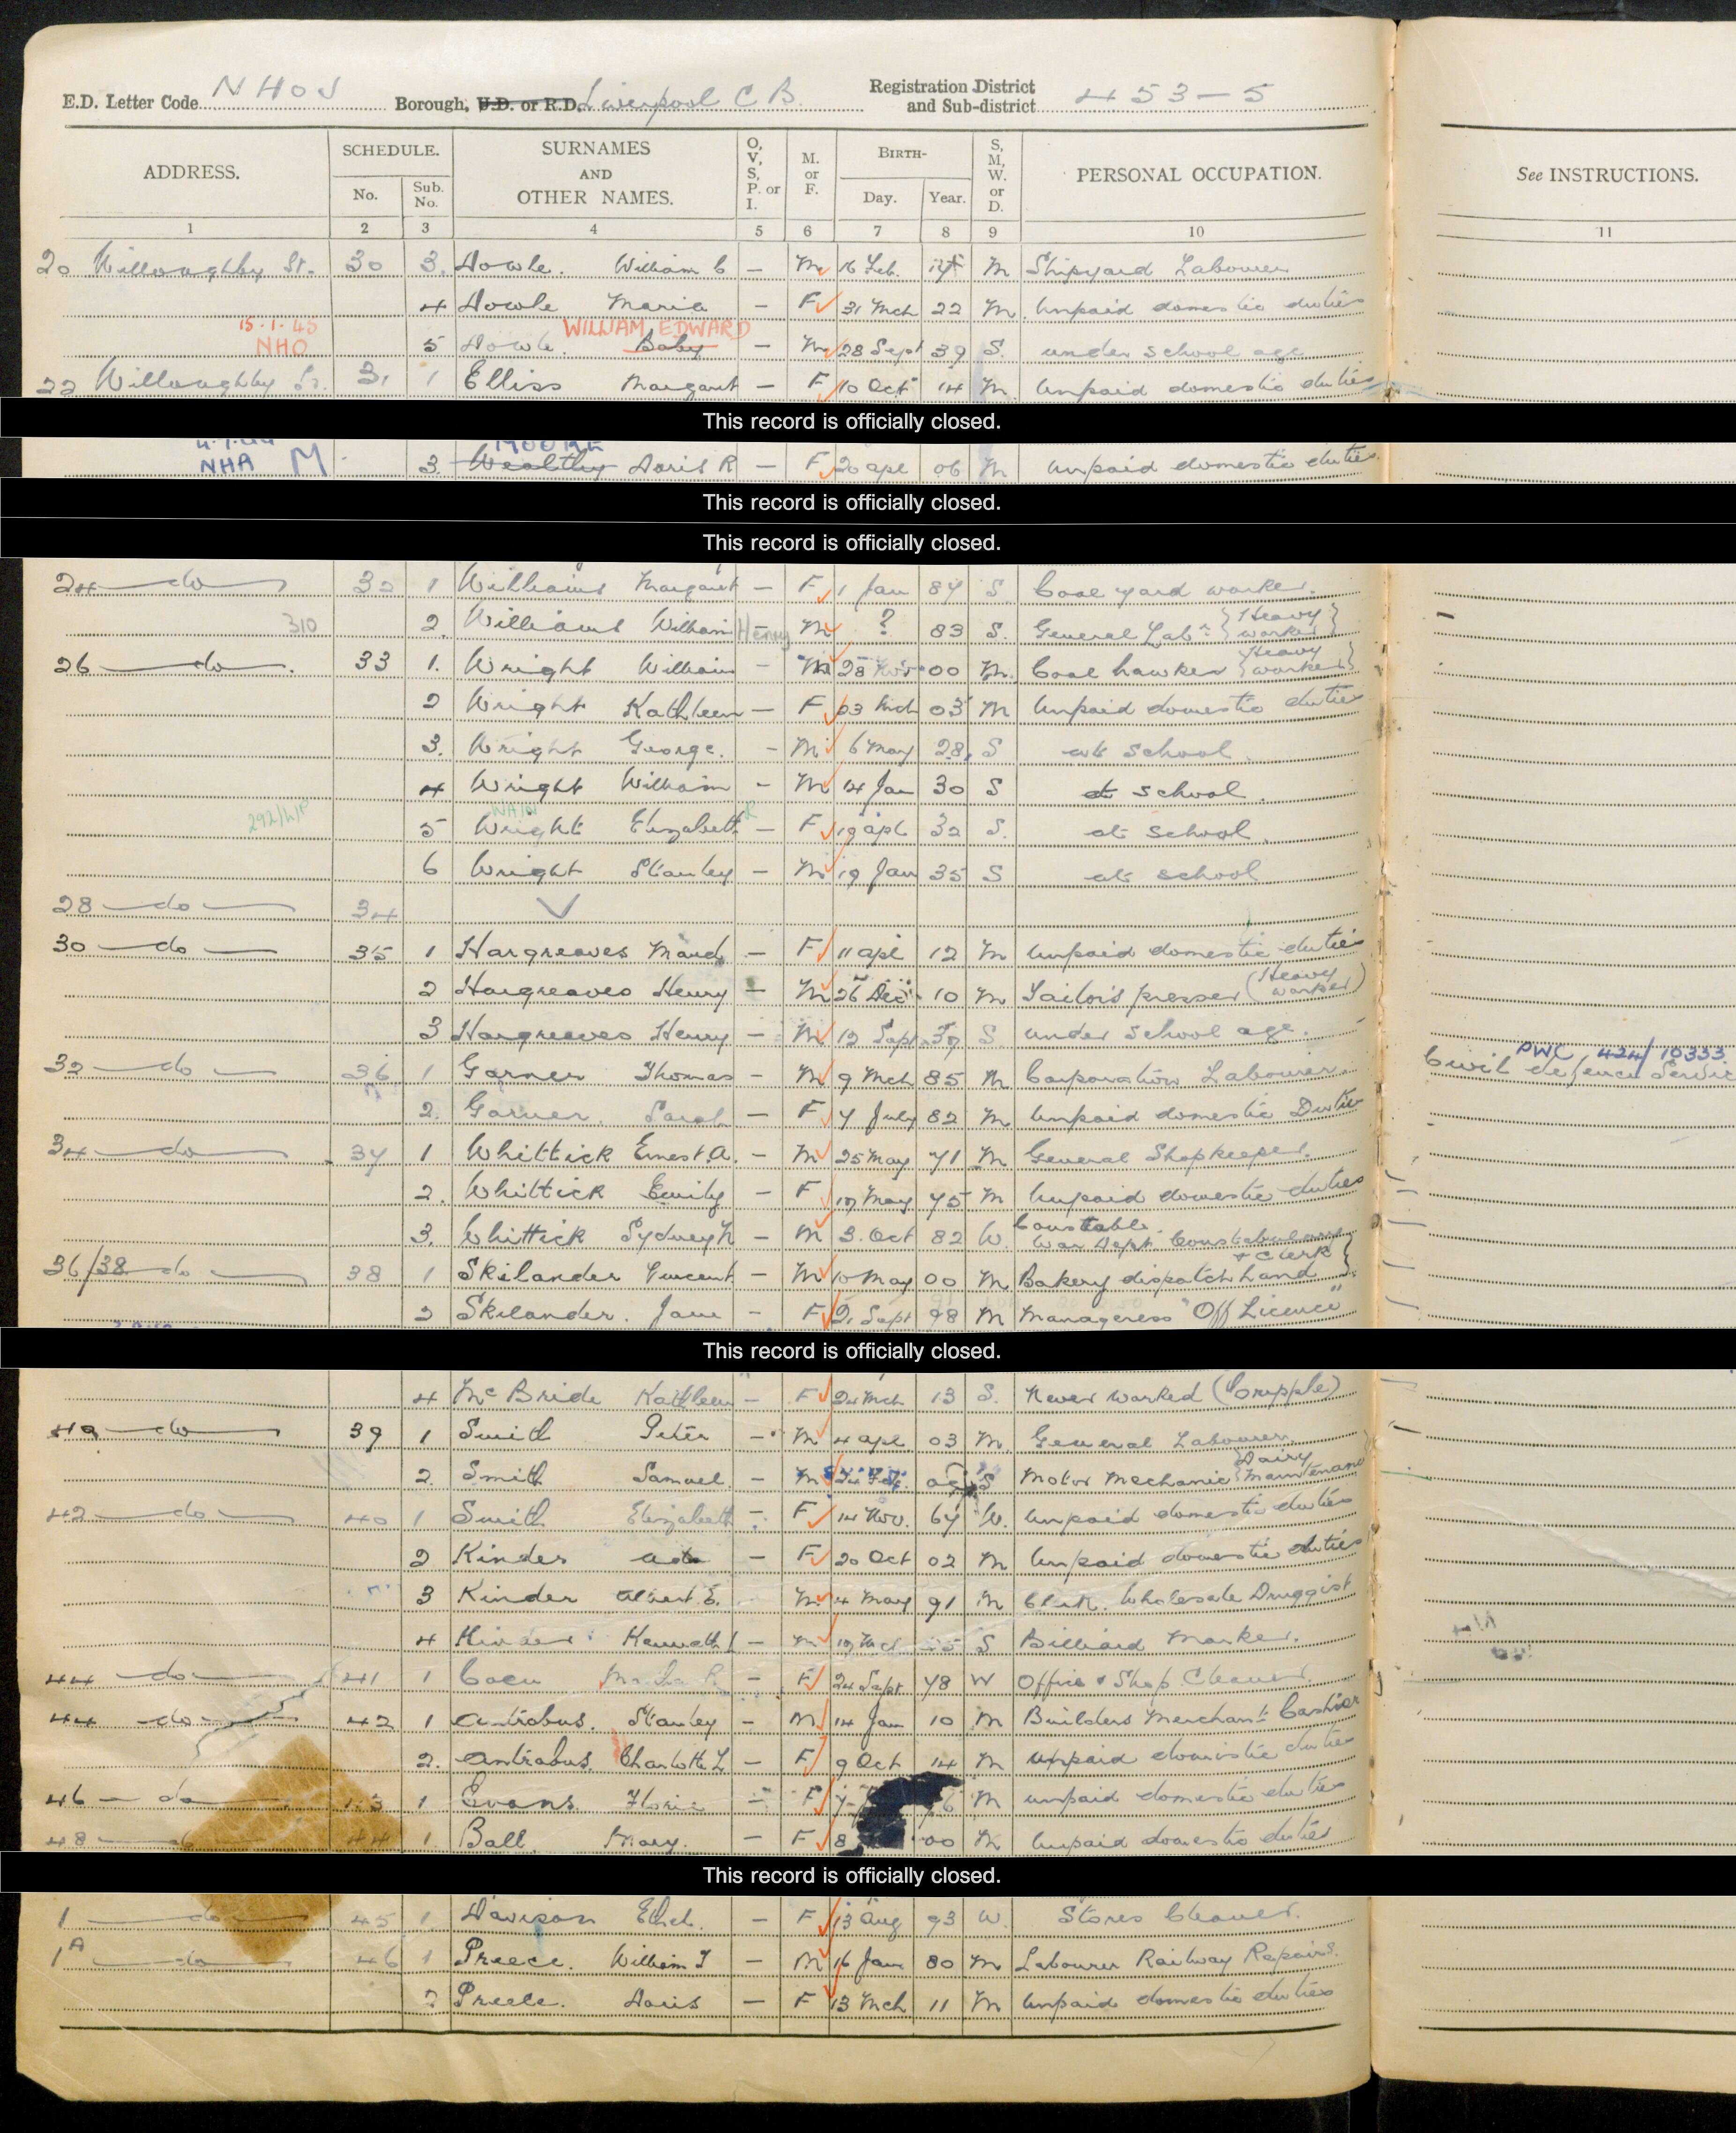 E.D. Letter Code NHOJ Borough, U.D. or R.D. Liverpool C B. Registration District and Sub-district 453-5
ADDRESS. SCHEDULE. No. Sub. No. SURNAMES AND OTHER NAMES. O, V, S, P. or I. M. or F. BIRTH- Day. Year. S, M, W. or D. PERSONAL OCCUPATION. See INSTRUCTIONS.
1 2 3 4 5 6 7 8 9 10 11
20 Willoughby St. 30 3. Dowle. William C — M 16 Feb. M Shipyard Labourer
4 Dowle Maria — F 31 Mch 22 M. Unpaid domestic duties
15.1.45 WILLIAM EDWARD
NHO 5 Dowle. Baby — M 28 Sept 39 S. under school age
22 Willoughby St. 31 1 Elliss Margaret — F 10 Oct 14 M. Unpaid domestic duties
This record is officially closed.
MOORE
NHA M 3. Wealthy Doris R — F 20 apl 06 M Unpaid domestic duties.
This record is officially closed.
This record is officially closed.
24 — do — 32 1 Williams Margaret — F 1 Jan 87 S. Coal yard worker.
310 2. Williams William Henry — M ? 83 S. General Labr {Heavy worker}
26 — do —. 33 1. Wright William — M 28 Nov 00 M. Coal hawker {Heavy worker}
2 Wright Kathleen — F 23 Mch 03 M Unpaid domestic duties
3. Wright George. — M 6 May 28, S at school.
4 Wright William — M 14 Jan 30 S at school.
292/L/P 5 Wright Elizabeth R — F 19 apl 32 S. at school.
6 Wright Stanley — M 19 Jan 35 S at school
28 — do — 34
30 — do — 35 1 Hargreaves Maud — F 11 apl 12 M Unpaid domestic duties
2 Hargreaves Henry — M 26 Dec 10 M Tailor's presser (Heavy worker)
3 Hargreaves Henry — M 12 Sept 37 S. under school age.
32 — do — 36 1 Garner Thomas — M 9 Mch 85 M. Corporation Labourer. PWC, 424/10333 Civil defence Servic
2. Garner. Sarah — F 7 July 82 M Unpaid domestic Duties
34 — do — 37 1 Whittick Ernest.A. — M 25 May 71 M General Shopkeeper.
2. Whittick Emily — F 19 May 75 M Unpaid domestic duties
3. Whittick Sydney H — M 3. Oct 82 W. Constable. War Dept. Constabulary
36/38 — do — 38 1 Skilander Vincent — M 10 May 00 M Bakery dispatch hand + Clerk }
2 Skilander. Jane — F 2, Sept 98 M Manageress "Off Licence"
This record is officially closed.
4 McBride Kathleen — F 24 Mch 13 S. Never worked (Cripple)
40 — do — 39 1 Smith Peter — M 4 apl 03 M. General Labourer.
2. Smith Samuel. — M 24 Feb. S Motor Mechanic {Dairy Maintenance
42 — do — 40 1 Smith Elizabeth — F 14 Nov. 67 W. Unpaid domestic duties
2 Kinder Ada — F 20 Oct 02 M Unpaid domestic duties
3 Kinder Albert E. M. 4 May 91 M Clerk. Wholesale Druggist
4 Kinder Kenneth — M 19 Mch S Billiard Marker.
44 — do — 41 1 Coen — F 24 Sept 78 W Office & Shop Cleaner.
44 — do — 42 1 Antrobus. Stanley — M 14 Jan 10 M Builders Merchant Cashier
2. Antrobus. Charlotte L — F 9 Oct 14 M unpaid domestic duties
46 — do — 43 1 Evans. Florie — F M unpaid domestic duties
48 — do — 44 1. Ball Mary. — F 8 00 M Unpaid domestic duties
This record is officially closed.
1 — do — 45 1. Davison Ethel. — F 13 Aug 93 W. Stores Cleaner.
1A — do — 46 1 Preece. William T — M 16 Jan 80 M Labourer Railway Repairs.
2 Preece. Doris — F 13 Mch 11 M Unpaid domestic duties